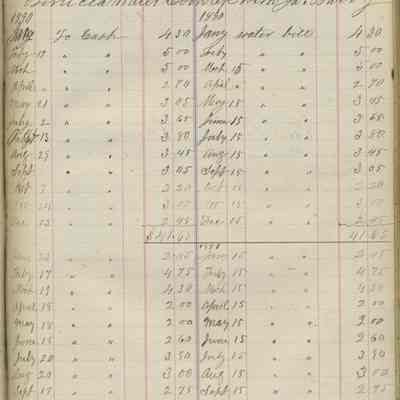 Benicia Water Company with Ja. Barry
1890 1890
To Cash 4 30 Jany water bill 4 30
Feby 18 " " 5 00 Feby " " 5 00
Mch " " 5 00 Mch 15 " " 5 00
April " " 2 70 April " " " 2 70
May 21 " " 3 45 May 15 " " 3 45
July 2 " " 3 65 June 15 " " 3 65
13 " " 3 80 July 15 " " 3 80
Aug 29 " " 3 45 Aug 15 " " 3 45
Sept " " 3 05 Sept 15 " " 3 05
Oct " " 2 20 Oct 15 " " 2 20
" " 3 00 15 " " 3 00
Dec 13 " " 2 45 Dec 15 " " 2 45
$41.65 41 65
" " 2 45 Jany 15 " " 2 45
Feby 17 " " 4 75 Feby 15 " " 4 75
Mch 19 " " 4 30 Mch 15 " " 4 30
April 18 " " 2 00 April 15 " " 2 00
May 18 " " 2 00 May 15 " " 2 00
June 15 " " 2 60 June 15 " " 2 60
July 20 " " 3 80 July 15 " " 3 80
Aug 20 " " 3 00 Aug 15 " " 3 00
Sept 17 " " 2 75 Sept 15 " " 2 75